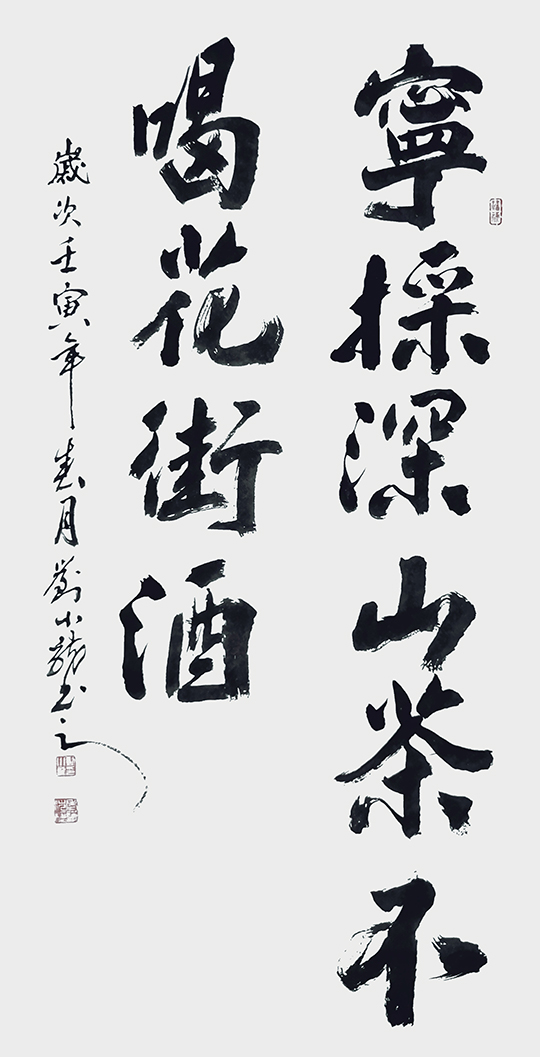 寧採深山茶不
喝花街酒
歲次壬寅年春月劉小龍書之